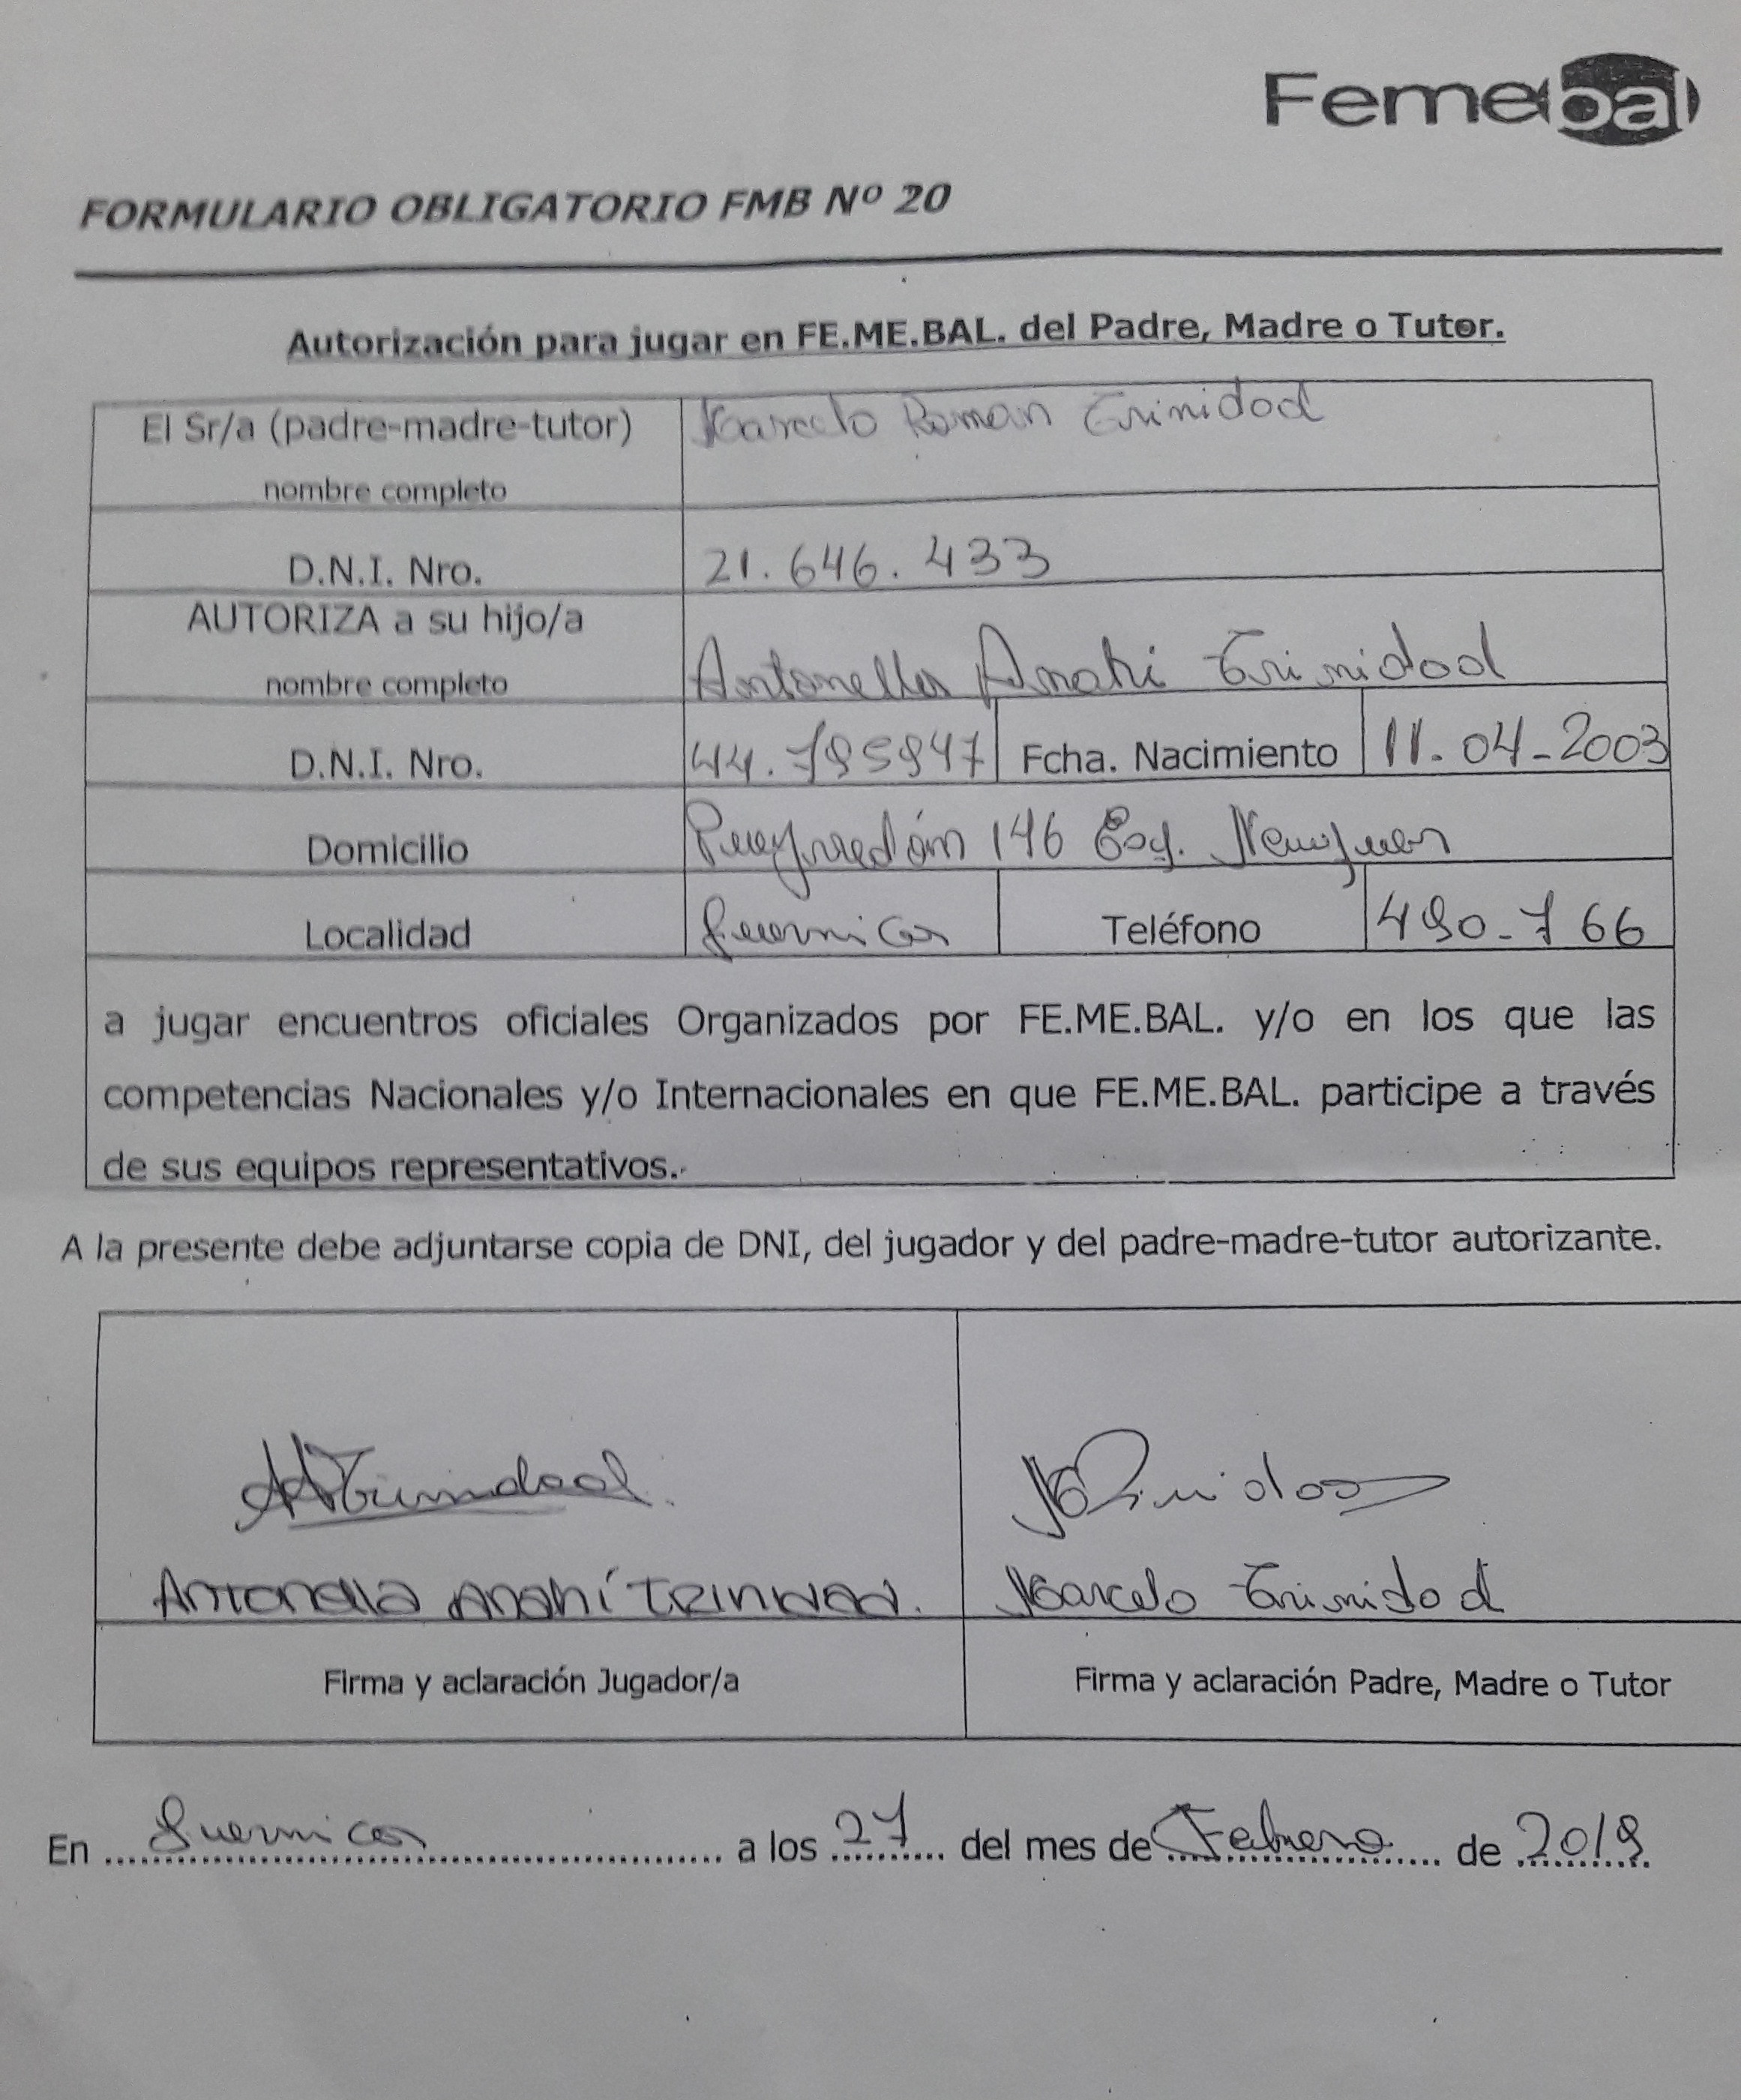 Femebal
FORMULARIO OBLIGATORIO FMB Nº 20
Autorización para jugar en FE.ME.BAL. del Padre, Madre o Tutor.
El Sr/a (padre-madre-tutor) nombre completo Marcelo Roman Trinidad
D.N.I. Nro. 21.646.433
AUTORIZA a su hijo/a nombre completo Antonella Anahi Trinidad
D.N.I. Nro. 44.795947 Fcha. Nacimiento 11-04-2003
Domicilio Pueyrredón 146 Esq. Neuquen
Localidad Guernica Teléfono 490-766
a jugar encuentros oficiales Organizados por FE.ME.BAL. y/o en los que las
competencias Nacionales y/o Internacionales en que FE.ME.BAL. participe a través
de sus equipos representativos.
A la presente debe adjuntarse copia de DNI, del jugador y del padre-madre-tutor autorizante.
AATrinidad. MTrinidad
Antonella Anahí Trinidad. Marcelo Trinidad
Firma y aclaración Jugador/a Firma y aclaración Padre, Madre o Tutor
En Guernica a los 27 del mes de Febrero de 2019